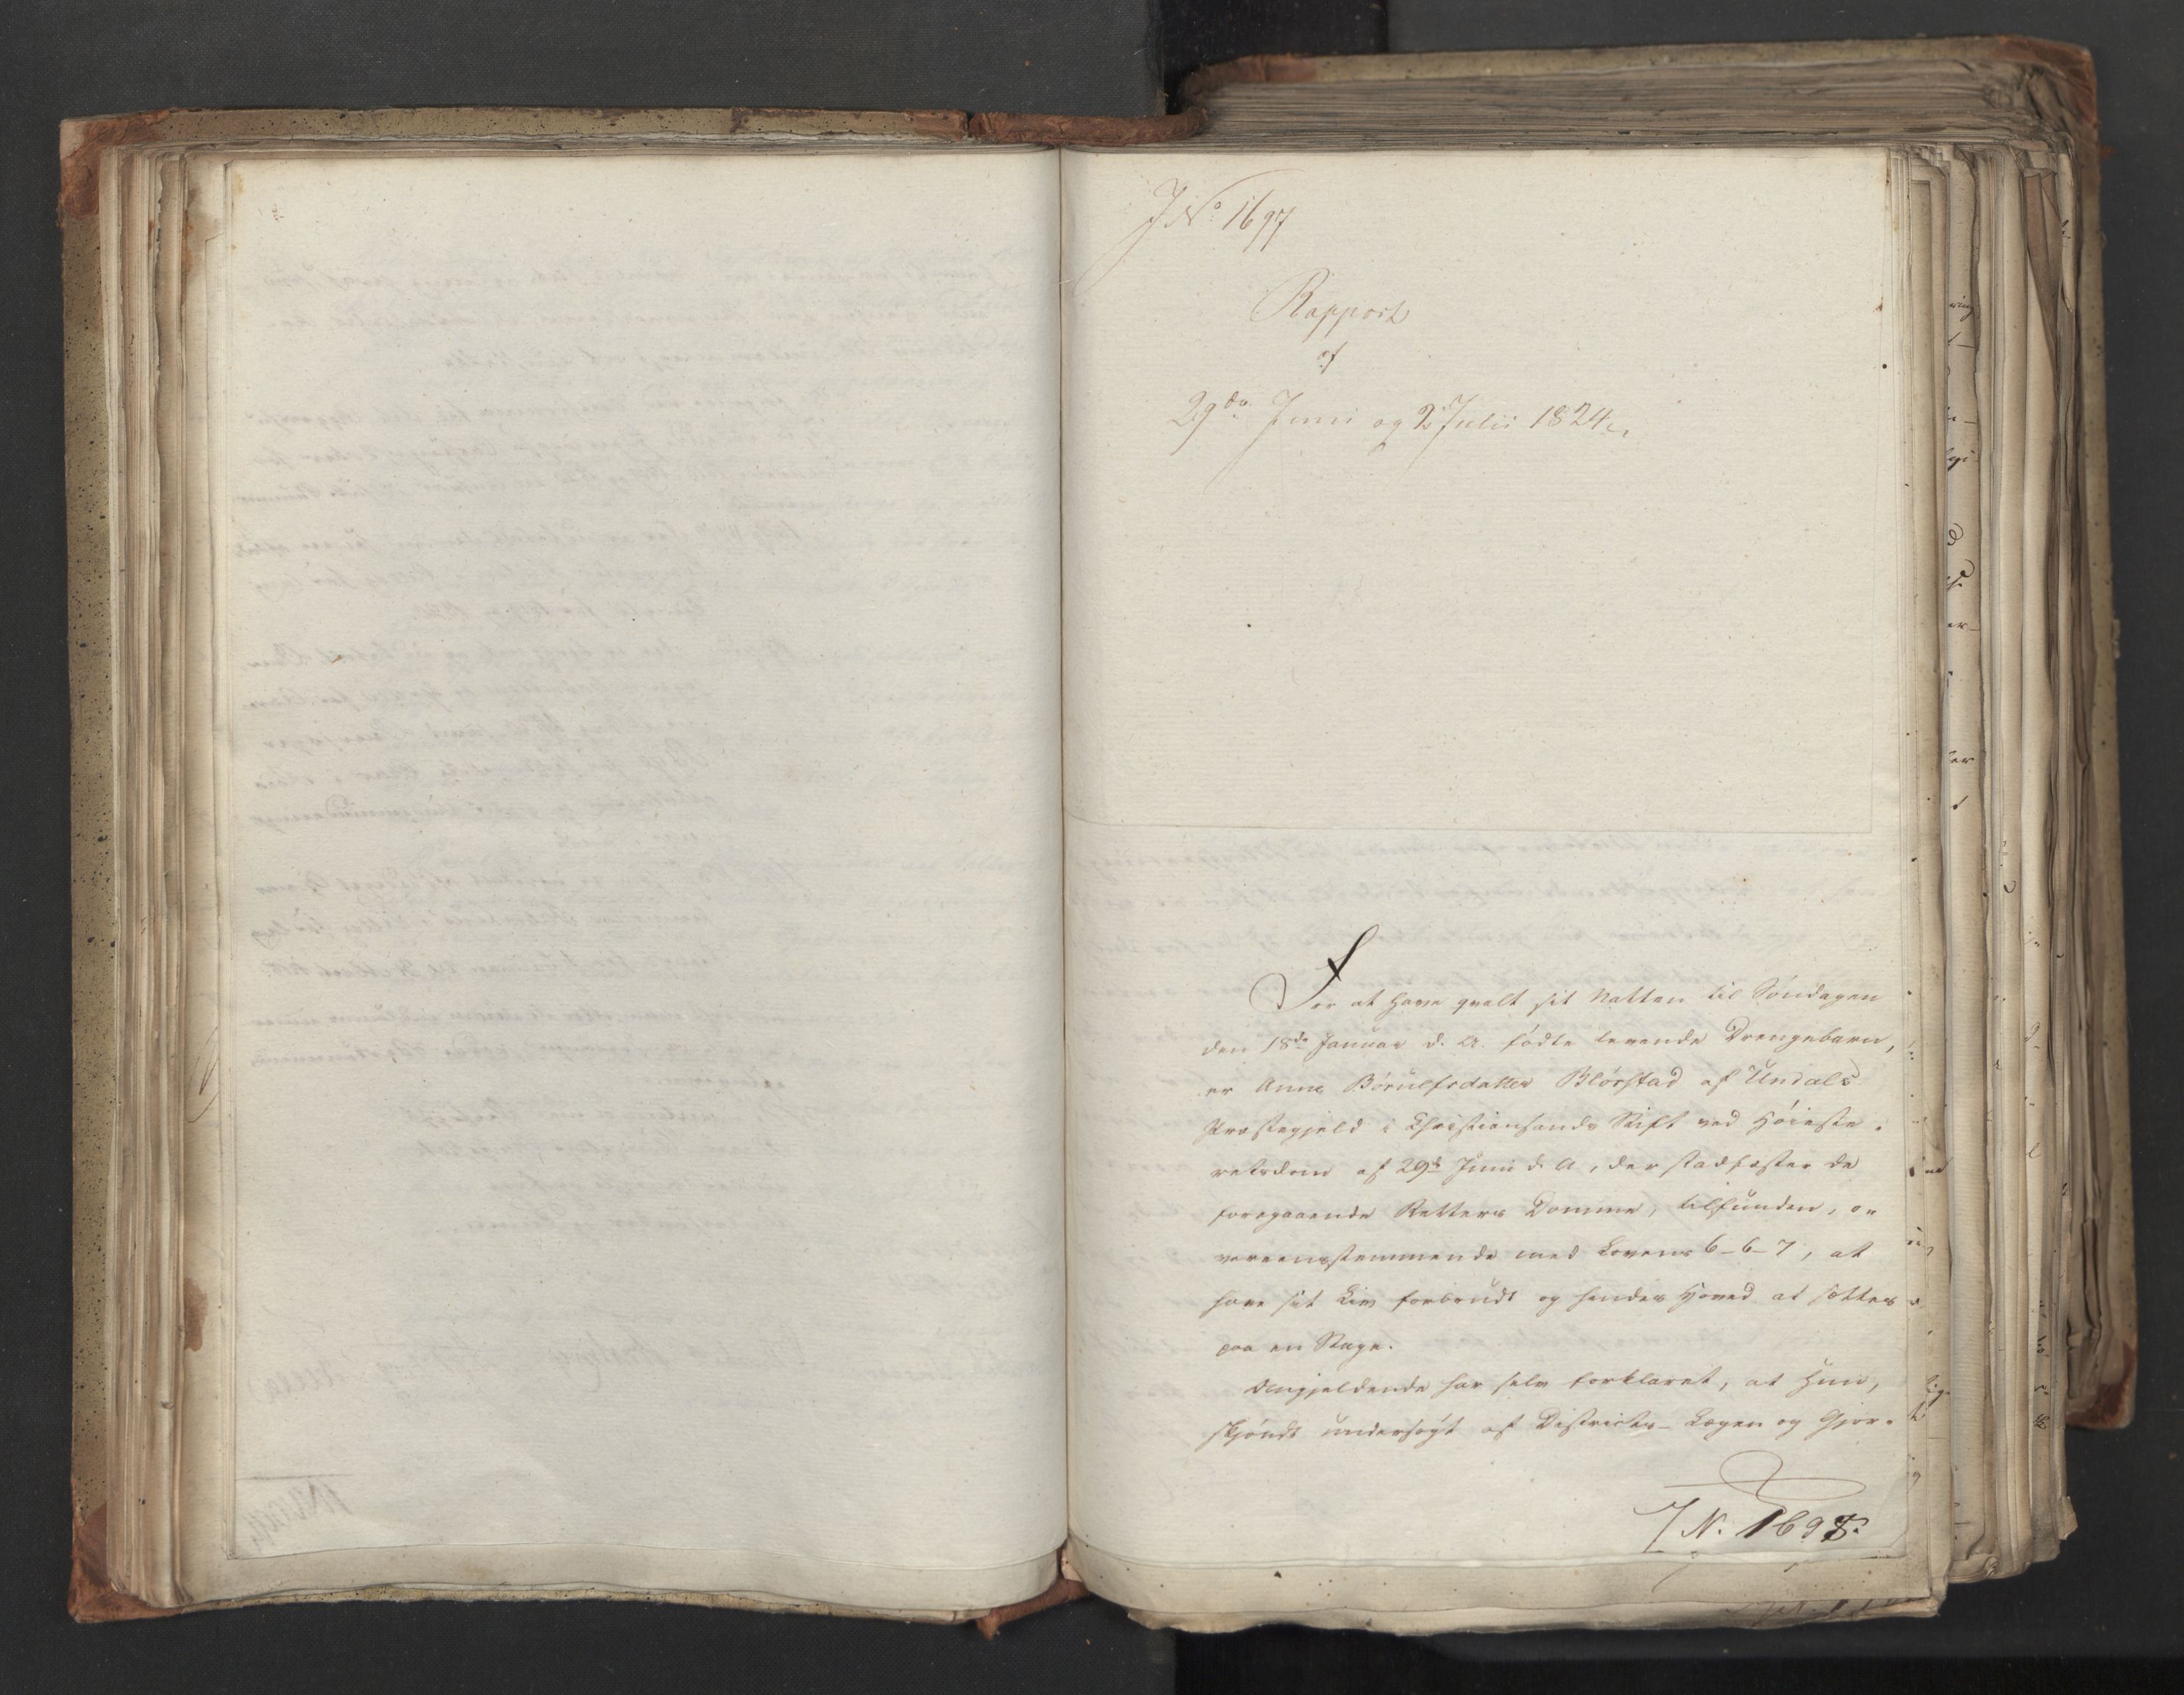 J No 1697
Rapport
af
29de Juni og 2 Julii 1824.
For at have qvalt sit Natten til Søndagen
den 18de Januar d. A. fødte levende Drengebarn,
er Anne Børulfsdatter Blørstad af Undals
Præstegjeld i Christiansands Stift ved Høieste-
retsdom af 29de Juni d. A, der stadfæster de
foregaaende Retters Domme, tilfunden, o-
vereensstemmende med Lovens 6-6-7, at
have sit Liv forbrudt og hendes Hoved at sættes
paa en Stage.
Angjeldende har selv forklaret, at Hun,
skjøndt undersøgt af Districts-Lægen og Gjor-
J N. 1698.